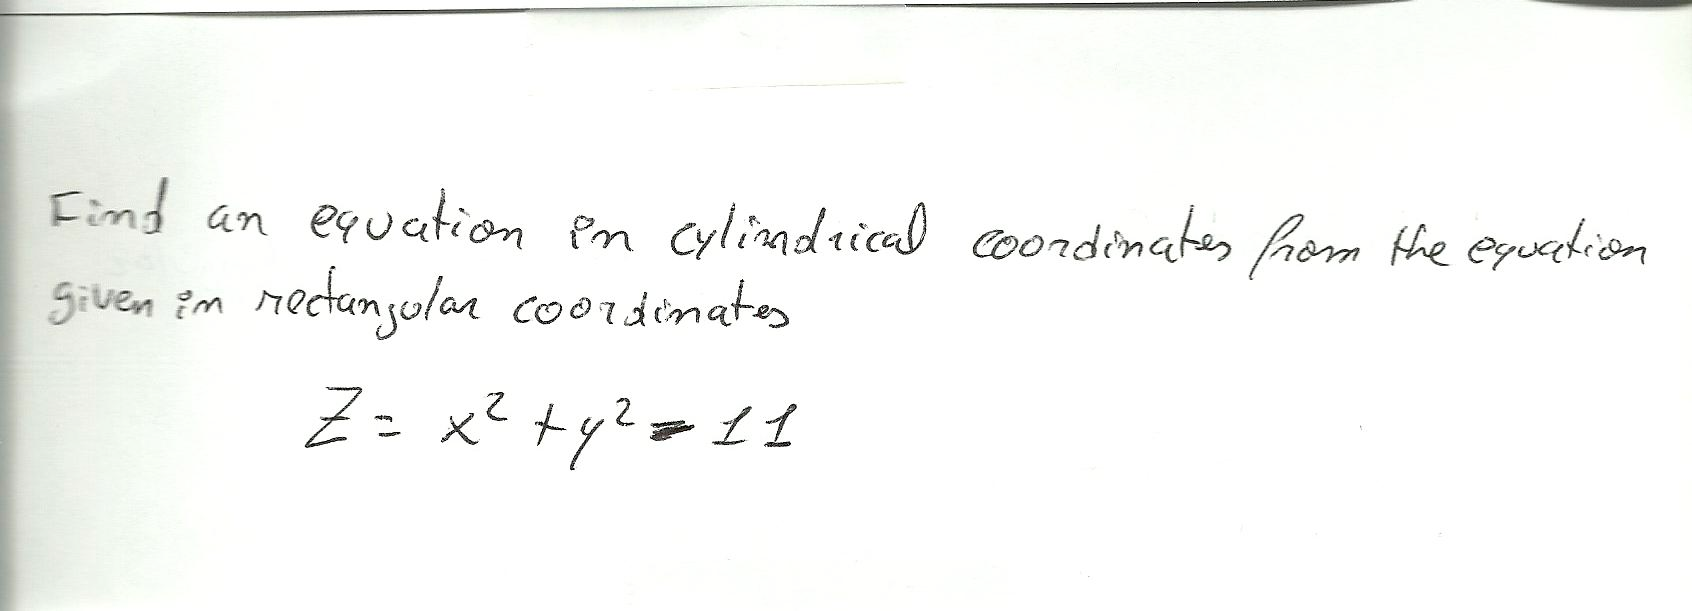 Find an equation in cylindrical coordinates from the equation
given in rectangular coordinates
Z = x² + y² - 11